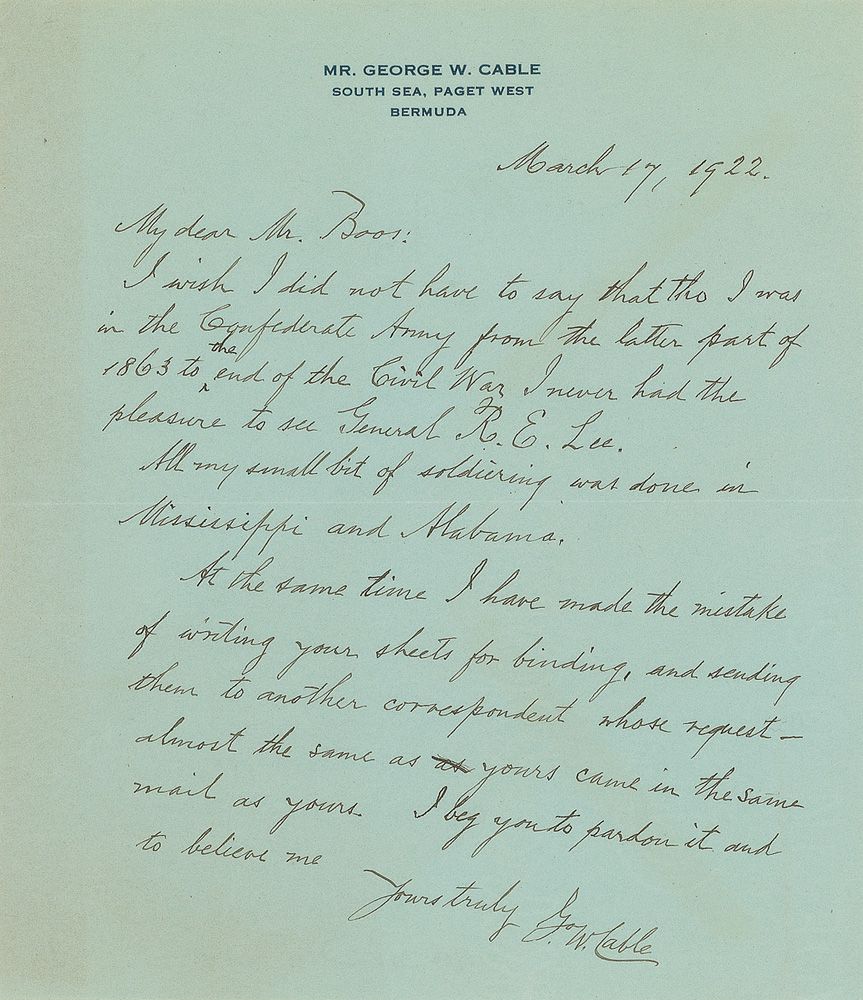 MR. GEORGE W. CABLE
SOUTH SEA, PAGET WEST
BERMUDA
March 17, 1922.
My dear Mr. Boos:
I wish I did not have to say that tho I was
in the Confederate Army from the latter part of
1863 to the end of the Civil War, I never had the
pleasure to see General R. E. Lee.
All my small bit of soldiering was done in
Mississippi and Alabama.
At the same time I have made the mistake
of writing your sheets for binding, and sending
them to another correspondent whose request—
almost the same as as yours came in the same
mail as yours. I beg you to pardon it and
to believe me
Yours truly G. W. Cable